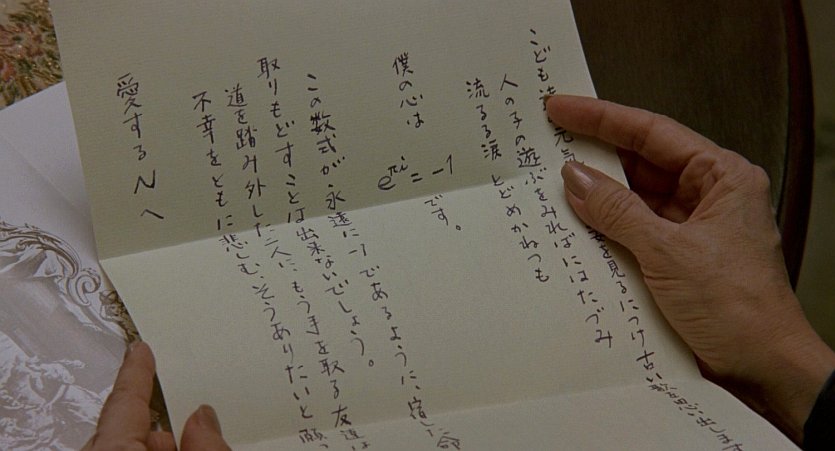 こども達 元気 姿を見るにつけ古い
人の子の遊ぶをみればにはたづみ
流るる涙 とどめかねつも
僕の心は e^πi = -1 です。
この数式が永遠に-1であるように、宿した命
取りもどすことは出来ないでしょう。
道を踏み外した二人に、もう手を取る友達は
不幸をともに悲しむ、そうありたいと願
愛するNへ